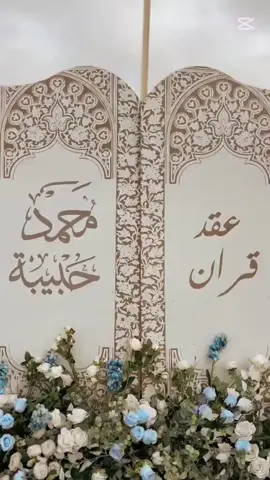 عقد
قران
محمد
حبيبة